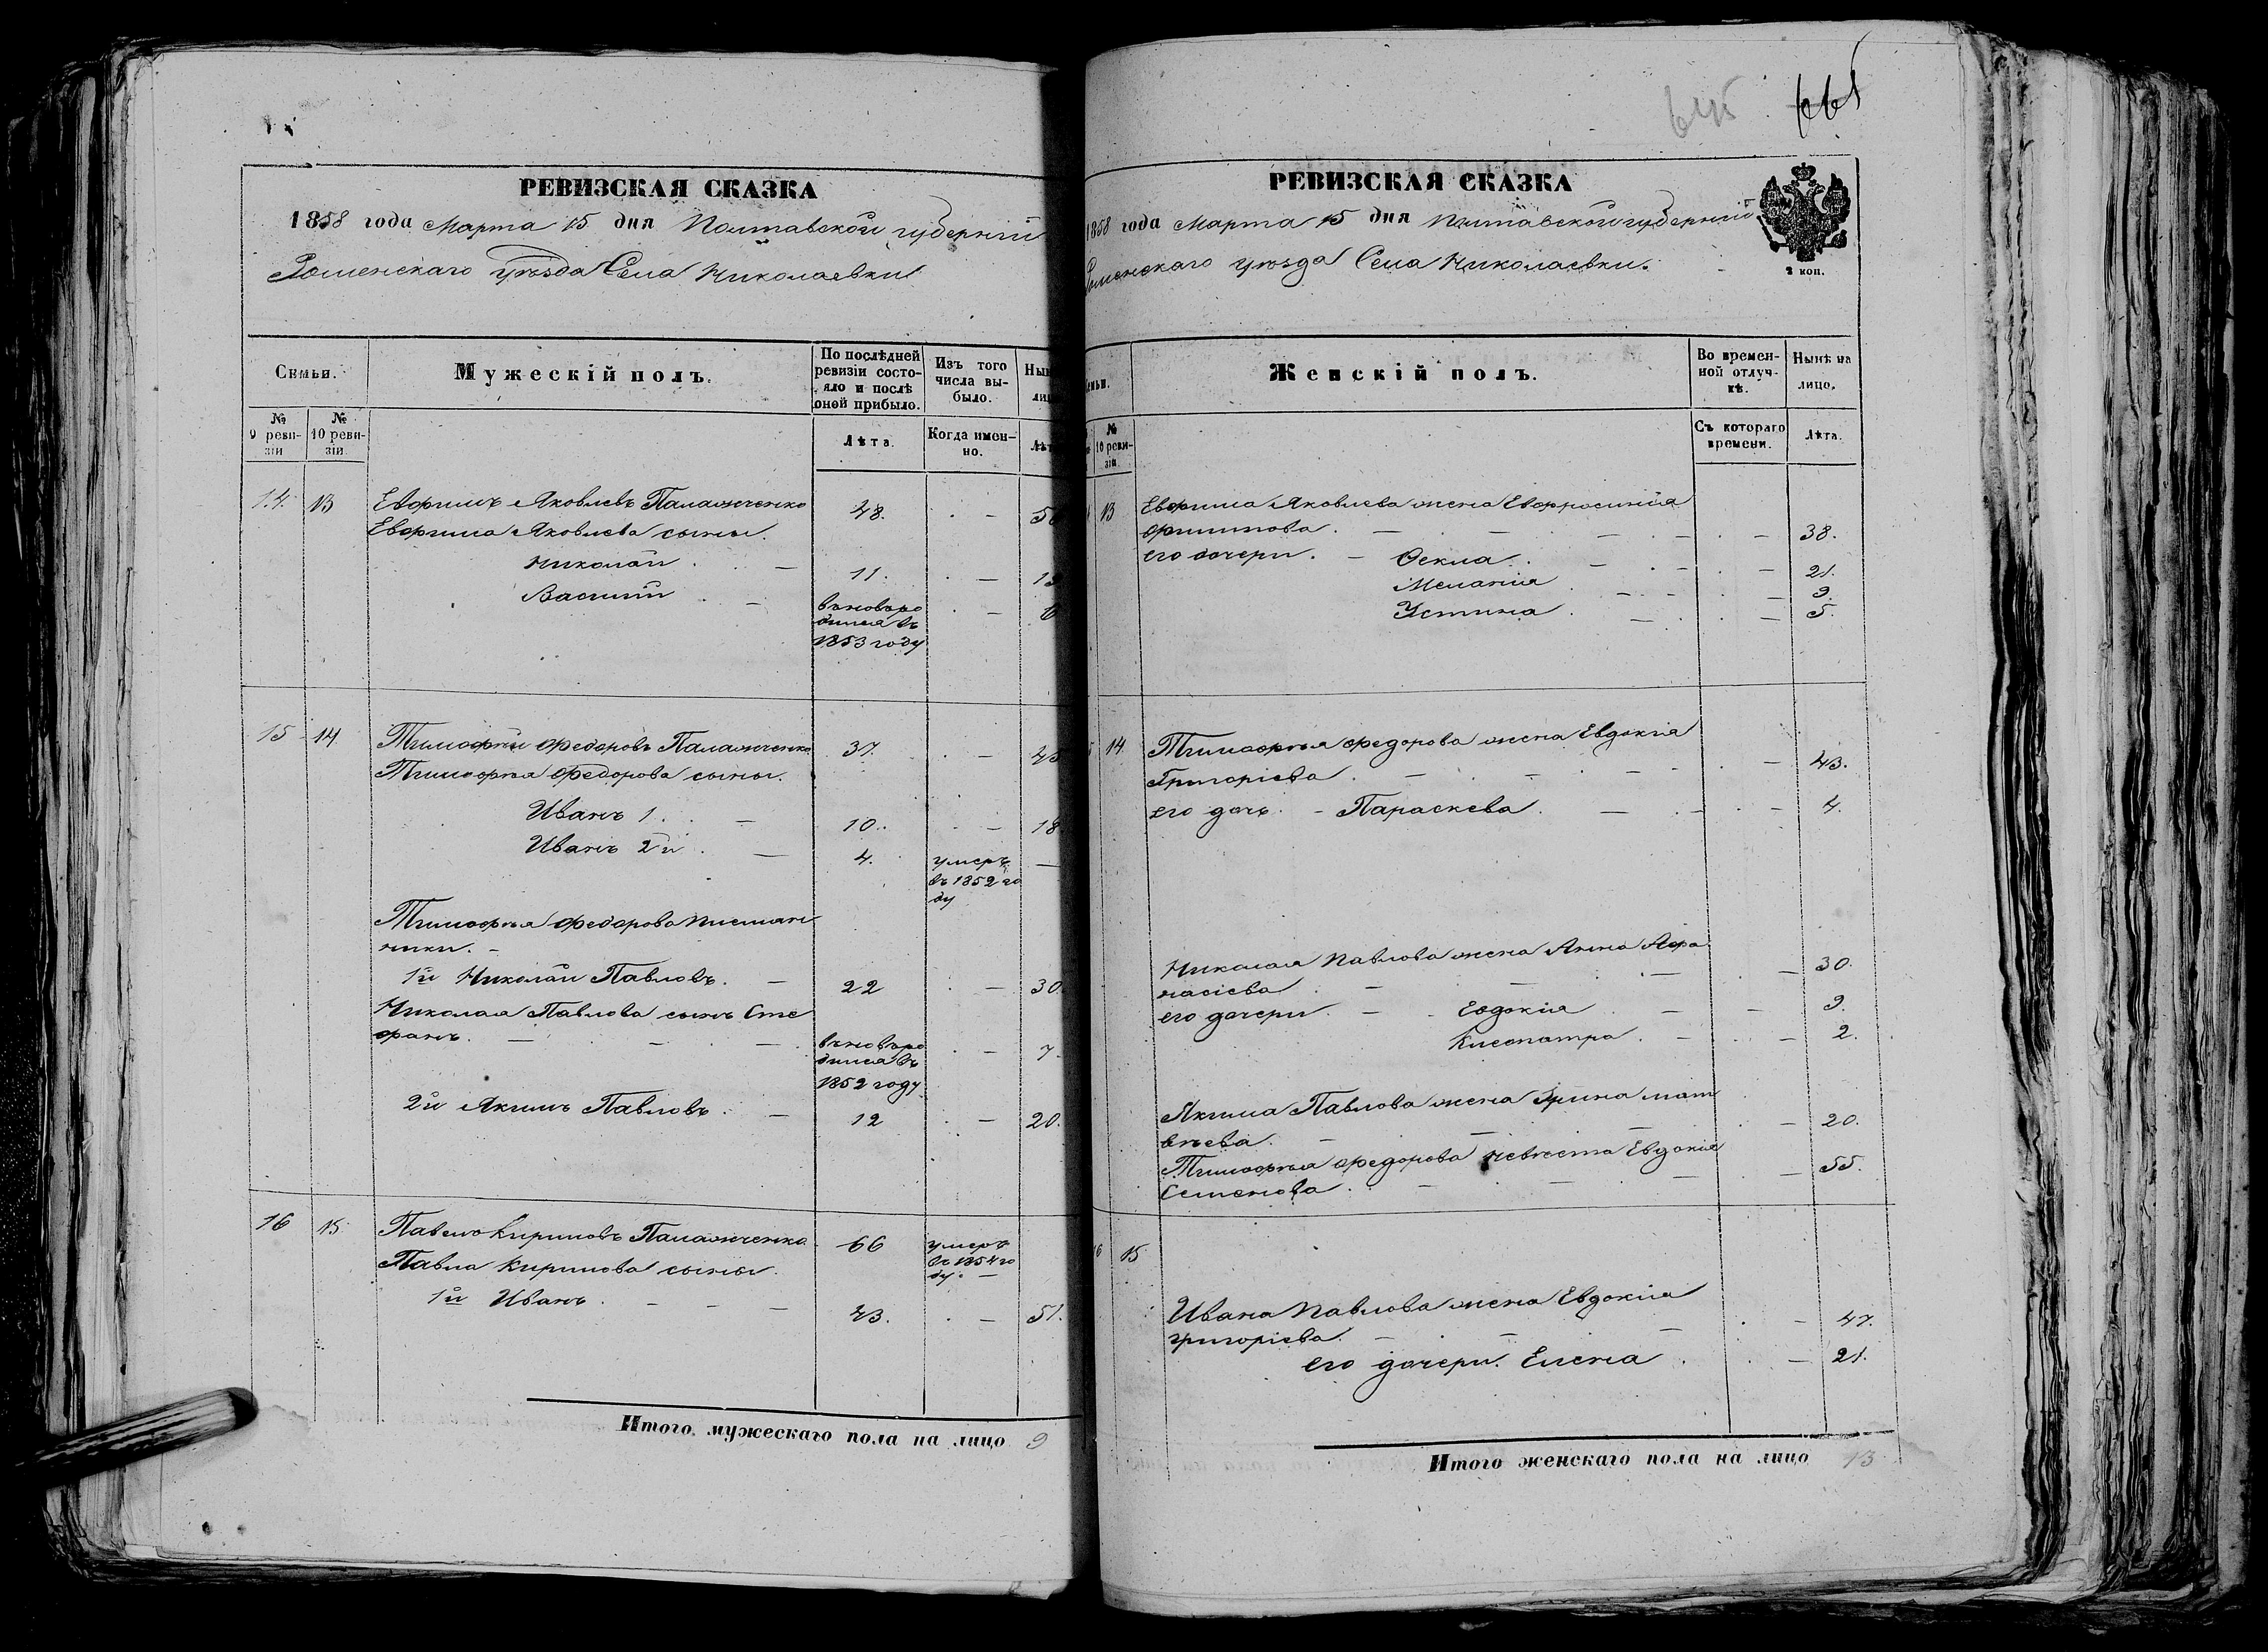 РЕВИЗСКАЯ СКАЗКА
1858 года Марта 15 дня Полтавской губерніи
Роменскаго уѣзда Села Николаевки
Семьи.
Мужескій полъ.
По послѣдней ревизіи состояло и послѣ оной прибыло.
Изъ того числа выбыло.
№ 9 ревизіи
№ 10 ревизіи.
Лѣта.
Когда именно.
14. 13 Ефримъ Яковлевъ Паламженко 48.
Ефрима Яковлева сыны.
Николай 11.
Василій вновьро
дился въ
1853 году
15 14. Тимофѣй Федоровъ Паламженко 37.
Тимофѣя Федорова сыны.
Иванъ 1. 10. 18
Иванъ 2й 4. умеръ
въ 1852 го
ду
Тимофѣя Федорова племян
ники.
1й Николай Павловъ. 22 30.
Николая Павлова сынъ Сте
фанъ. вновьро 7.
дился въ
1852 году
2й Якимъ Павловъ 12 20.
16 15 Павелъ Кириловъ Паламженко 66 умеръ
въ 1854 го
ду.
Павла Кирилова сыны.
1й Иванъ 43. 51.
Итого мужескаго пола на лицо 9
645 661
РЕВИЗСКАЯ СКАЗКА
1858 года Марта 15 дня Полтавской губерніи
Роменскаго уѣзда Села Николаевки.
2 коп.
Женскій полъ.
Во временной отлучкѣ.
Нынѣ на лицо.
№ 10 ревизіи
Съ котораго времени.
Лѣта.
13 Ефрима Яковлева жена Евфросинія
Филипова 38.
его дочери. Фекла 21.
Меланія 9.
Устина 5.
14. Тимофѣя Федорова жена Евдокія
Григоріева 43.
его дочь Параскева 4.
Николая Павлова жена Анна Афа
насіева 30.
его дочери Евдокія 9.
Клеопатра 2.
Якима Павлова жена Ирина Мат
вѣева 20.
Тимофѣя Федорова невѣста Евдокія 55.
Семенова
16 15
Ивана Павлова жена Евдокія
Григоріева 47.
его дочери. Елена 21.
Итого женскаго пола на лицо 13